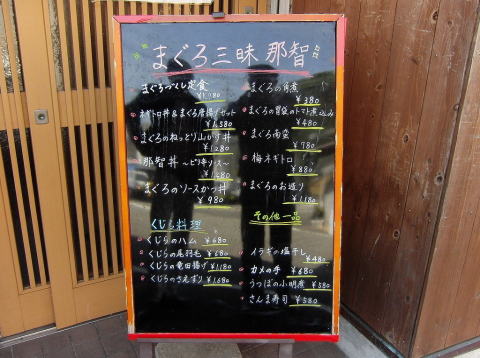 まぐろ三昧 那智
まぐろづくし定食
¥1,780
ネギトロ丼&まぐろ唐揚げセット
¥1,580
まぐろのねっとり山かけ丼
¥1,280
那智丼 〜ピリ辛ソース〜
¥1,280
まぐろのソースかつ丼
¥980
くじら料理
くじらのハム ¥680
くじらの尾羽毛 ¥680
くじらの竜田揚げ ¥1,180
くじらのさえずり ¥1,680
まぐろの角煮
¥380
まぐろの胃袋のトマト煮込み
¥480
まぐろ南蛮
¥780
梅ネギトロ
¥880
まぐろのお造り
¥1,180
その他一品
イラギの塩干し
¥480
カメの手 ¥680
うつぼの小明煮 ¥580
さんま寿司 ¥580